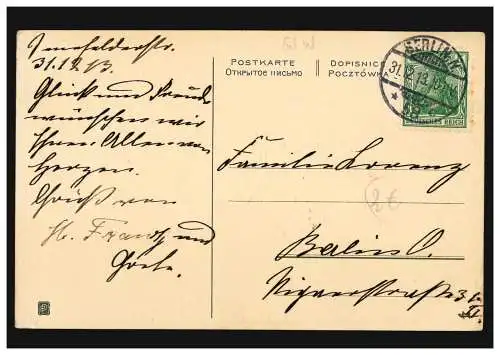 31.12.13.
Glück und Freude
wünschen wir
Ihnen Allen von
Herzen.
Gruß von
Frantz und
POSTKARTE
ОТКРЫТОЕ ПИСЬМО
DOPISNICE
POCZTÓWKA
BERLIN
31.12.13.
DEUTSCHES REICH
Familie Lorenz
2€
Berlin O.